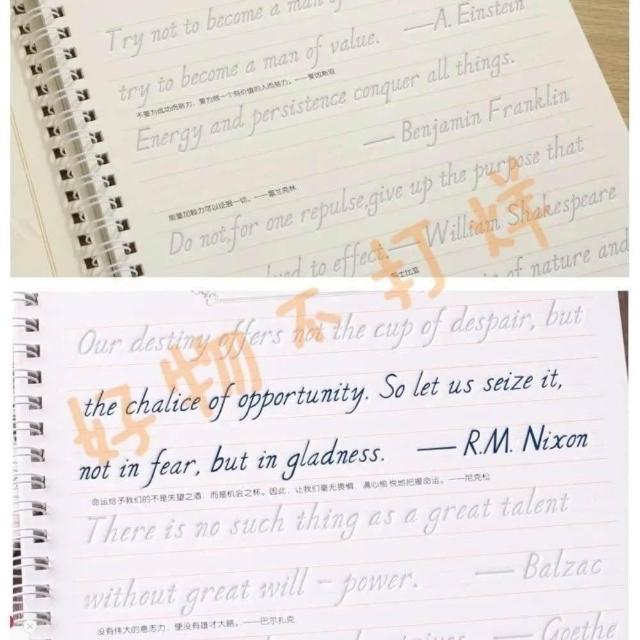 Try not to become a man of
try to become a man of value. —A. Einstein
不要为成功而努力，要为做一个有价值的人而努力。——爱因斯坦
Energy and persistence conquer all things.
— Benjamin Franklin
能量加毅力可以征服一切。——富兰克林
Do not,for one repulse,give up the purpose that
to effect. — William Shakespeare
士比亚
of nature and
好物不打烊
Our destiny offers not the cup of despair, but
the chalice of opportunity. So let us seize it,
not in fear, but in gladness. — R.M. Nixon
命运给予我们的不是失望之酒，而是机会之杯。因此，让我们毫无畏惧，满心愉悦地把握命运。——尼克松
There is no such thing as a great talent
without great will - power. — Balzac
没有伟大的意志力，便没有雄才大略。——巴尔扎克
— Goethe